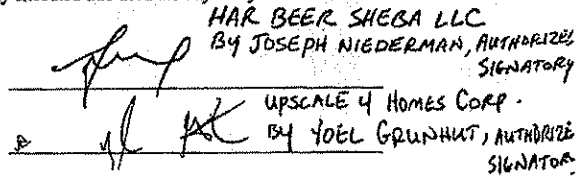 HAR BEER SHEBA LLC
BY JOSEPH NIEDERMAN, AUTHORIZED
SIGNATORY
UPSCALE 4 HOMES CORP.
BY YOEL GRUNHUT, AUTHORIZE
SIGNATOR